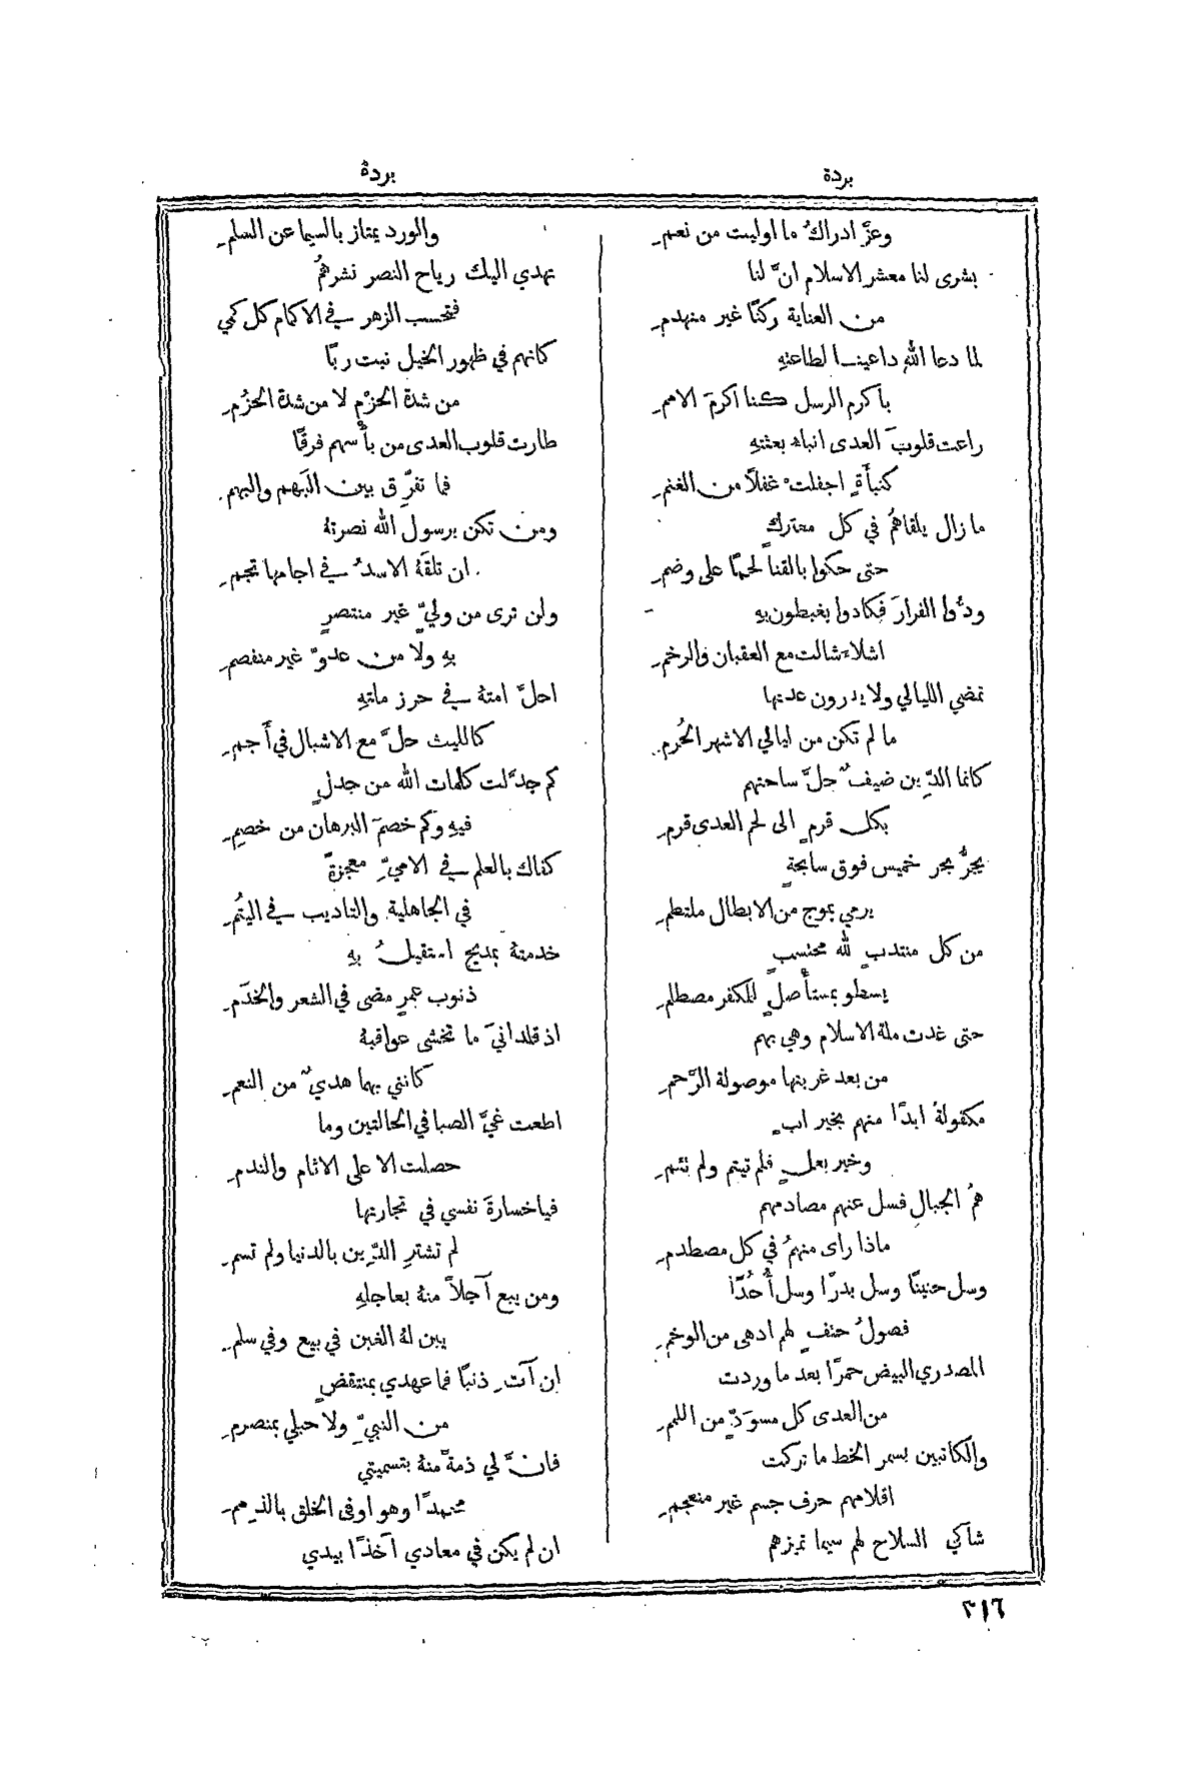 بردة
بردة
وعزَّ ادراكُ ما اوليت من نعمِ
بشرى لنا معشر الاسلام انَّ لنا
من العناية ركنًا غير منهدمِ
لما دعا اللهُ داعينا لطاعتهِ
باكرم الرسل كنا اكرمَ الاممِ
راعت قلوبَ العدى انباء بعثتهِ
كنبأَةٍ اجفلت غفلاً من الغنمِ
ما زال يلقاهمُ في كل معتركٍ
حتى حكوا بالقنا لحمًا على وضمِ
ودُّوا الفرارَ فكادوا يغبطون بهِ
اشلاءَ شالت مع العقبان والرخمِ
تمضي الليالي ولا يدرون عدتها
ما لم تكن من ليالي الاشهر الحُرمِ
كانما الدِّين ضيفٌ حلَّ ساحتهم
بكل قرمٍ الى لحم العدى قرمِ
يجرُّ بحر خميس فوق سابحةٍ
يرمي بموج من الابطال ملتطمِ
من كل منتدبٍ لله محتسبٍ
يسطو بمستأصلٍ للكفر مصطلمِ
حتى غدت ملة الاسلام وهي بهم
من بعد غربتها موصولة الرَّحمِ
مكفولةً ابدًا منهم بخير ابٍ
وخير بعلٍ فلم تيتم ولم تئمِ
همُ الجبال فسل عنهم مصادمهم
ماذا راى منهمُ في كل مصطدمِ
وسل حنينًا وسل بدرًا وسل أُحُدًا
فصولُ حتفٍ لهم ادهى من الوخمِ
المصدري البيض حمرًا بعد ما وردت
من العدى كل مسودٍّ من اللممِ
والكاتبين بسمر الخط ما تركت
اقلامهم حرف جسم غير منعجمِ
شاكي السلاح لهم سيما تميزهم
والورد يمتاز بالسيما عن السلمِ
تهدي اليك رياح النصر نشرهمُ
فتحسب الزهر في الاكمام كل كمي
كانهم في ظهور الخيل نبت ربًا
من شدة الحزْم لا من شدة الحزُمِ
طارت قلوب العدى من بأْسهم فرقًا
فما تفرِّق بين البَهم والبهمِ
ومن تكن برسول الله نصرتهُ
ان تلقَهُ الاسدُ في اجامها تجمِ
ولن ترى من وليٍّ غير منتصرٍ
بهِ ولا من عدوٍّ غير منفصمِ
احلَّ امتهُ في حرز ملتهِ
كالليث حلَّ مع الاشبال في أَجمِ
كم جدَّلت كلمات الله من جدلٍ
فيهِ وكم خصمَ البرهان من خصمِ
كفاك بالعلم في الاميِّ معجزةً
في الجاهلية والتاديب في اليتُمِ
خدمتهُ بمديح استقيلُ بهِ
ذنوب عمرٍ مضى في الشعر والخدَمِ
اذ قلدانيَ ما تخشى عواقبهُ
كانني بهما هديٌ من النعمِ
اطعت غيَّ الصبا في الحالتين وما
حصلت الا على الاثام والندمِ
فيا خسارةَ نفسي في تجارتها
لم تشترِ الدِّين بالدنيا ولم تسمِ
ومن يبع آجلاً منهُ بعاجلهِ
يبن لهُ الغبن في بيع وفي سلمِ
ان آتِ ذنبًا فما عهدي بمنتقضٍ
من النبيِّ ولا حبلي بمنصرمِ
فانَّ لي ذمةً منهُ بتسميتي
محمدًا وهو اوفى الخلق بالذممِ
ان لم يكن في معادي آخذًا بيدي
٢١٦